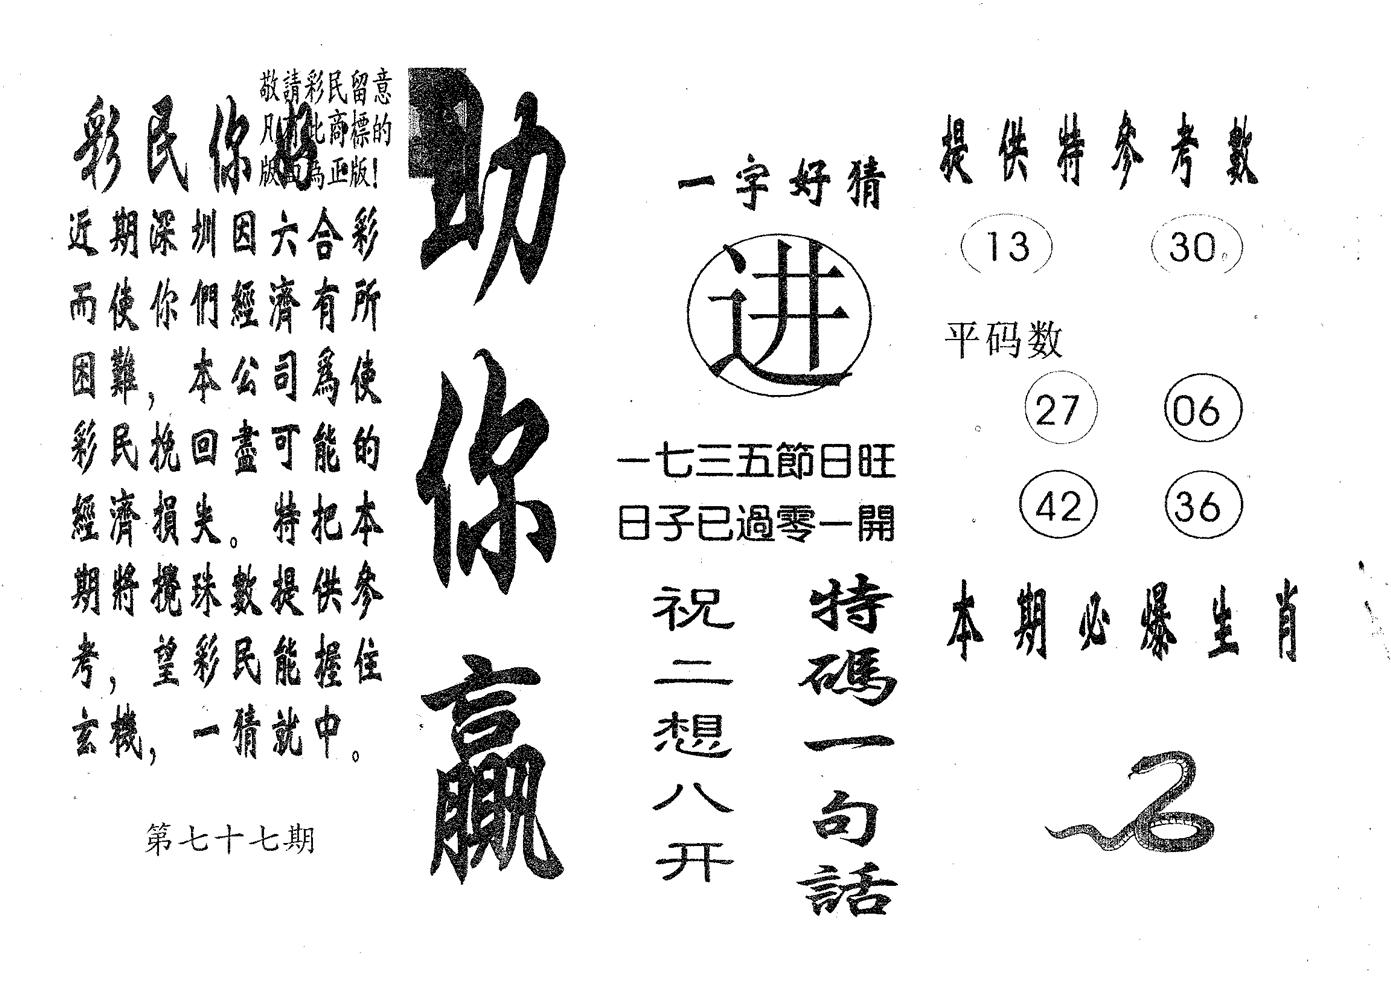 敬請彩民留意
凡有此商標的
版面為正版!
彩民你好
近期深圳因六合彩
而使你們經濟有所
困難，本公司爲使
彩民挽回盡可能的
經濟損失。特把本
期將攪珠數提供參
考，望彩民能握住
玄機，一猜就中。
第七十七期
助你贏
一字好猜
进
一七三五節日旺
日子已過零一開
特碼一句話
祝二想八开
提供特參考數
13 30
平码数
27 06
42 36
本期必爆生肖